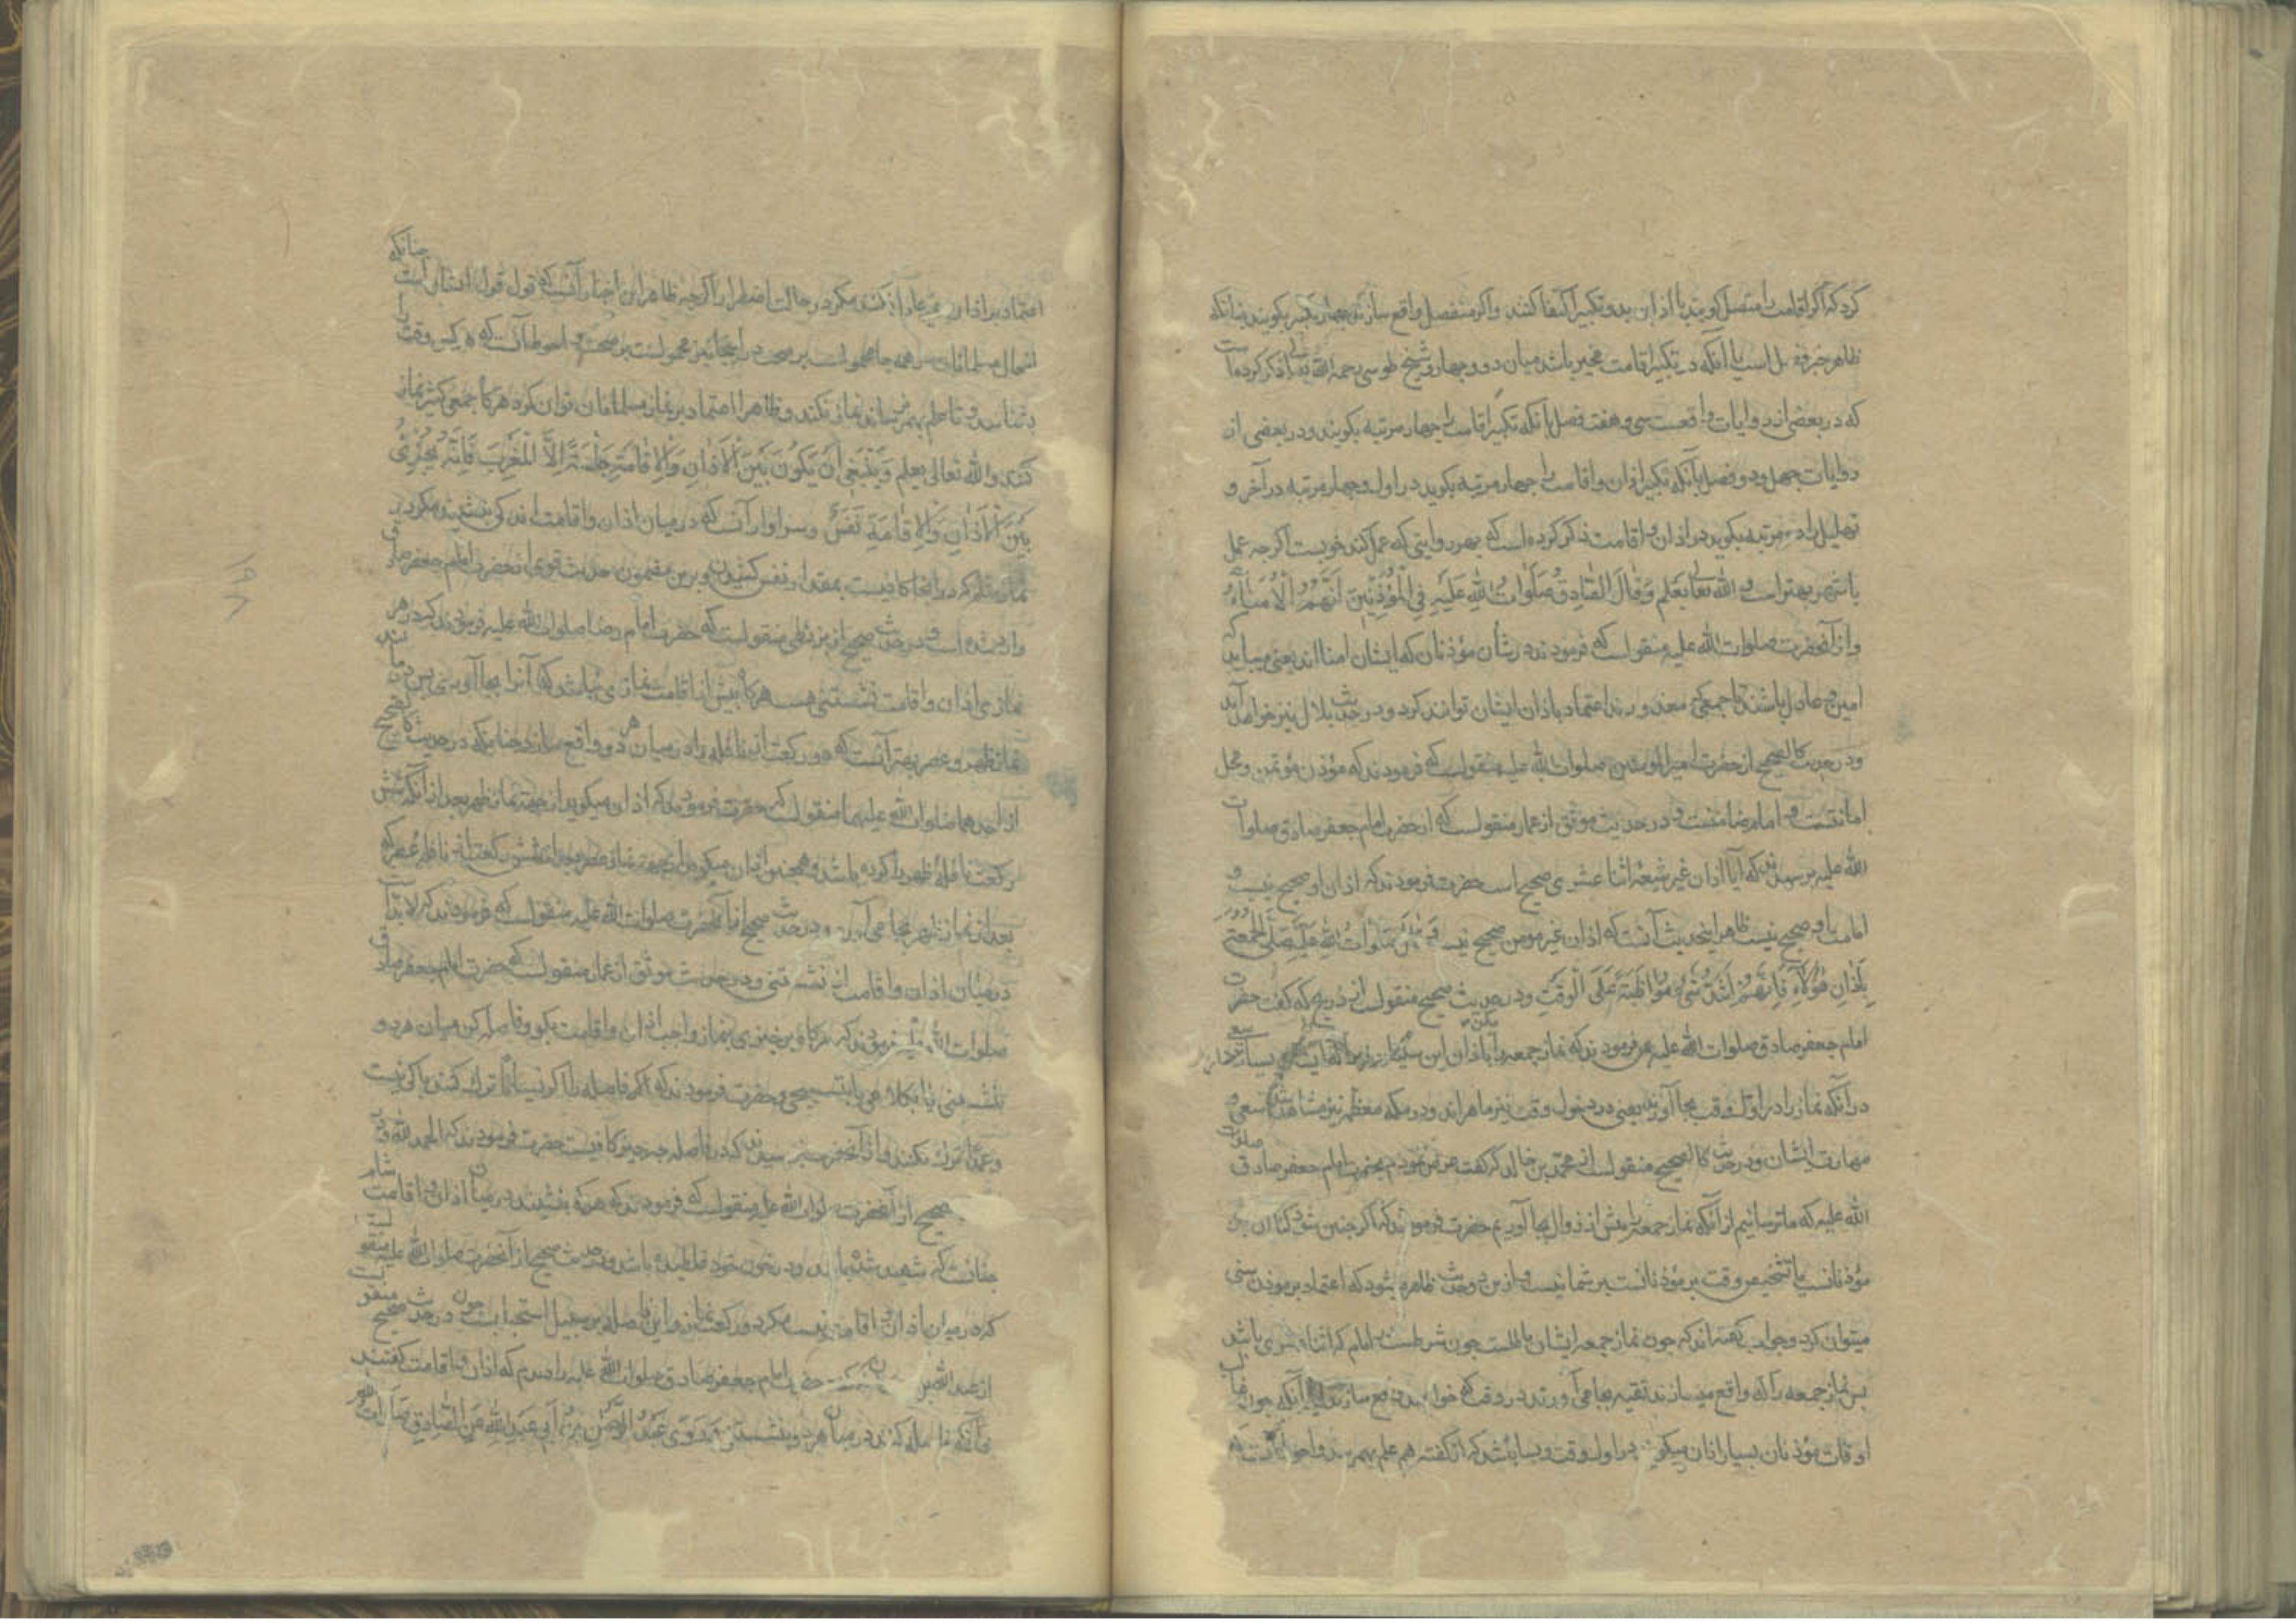 کرد که اگر اقامت را متصل کویند با اذان بدو تکبیر اکتفا کنند واکر منفصل واقع سازند چهار تکبیر بکویند بنا بانکه
ظاهر خبر است با آنکه در تکبیر اقامت مخیر باشد میان دو وچهار وشیخ طوسی رحمه الله ذکر کرده است
که در بعضی از روایات واقعست سی وهفت فصل بآنکه تکبیر اقامت را چهار مرتبه بکویند ودر بعضی از
روایات چهل ودو فصل بآنکه تکبیر اذان واقامت را چهار مرتبه بکوید در اول وچهار مرتبه در آخر و
تهلیل را دو مرتبه بکوید در اذان واقامت ذکر کرده است که بهر روایتی که عمل کند خوبست اکرچه عمل
باشهر بهتر است والله تعالی یعلم وَقَالَ الصَّادِقُ صَلَوَاتُ اللهِ عَلَیْهِ فِي الْمُؤَذِّنِينَ اَنَّهُمُ الْاُمَنَاءُ
واز آنحضرت صلوات الله علیه منقولست که فرمودند در شأن مؤذنان که ایشان امنااند یعنی میباید که
امین وعادل باشند تا جمعی که معذورند اعتماد باذان ایشان توانند کرد ودر حدیث بلال نیز خواهد آمد
ودر حدیث کالصحیح از حضرت امیر المومنین صلوات الله علیه منقولست که فرمودند که مؤذن مؤتمن ومحل
امانتست وامام ضامنست ودر حدیث موثق از عمار منقولست که از حضرت امام جعفر صادق صلوات
الله علیه پرسیدند که آیا اذان غیر شیعهٔ اثنا عشری صحیح است حضرت فرمودند که اذان او صحیح نیست و
امامت او صحیح نیست ظاهر این حدیث آنست که اذان غیر مومن صحیح نیست وَقَالَ صَلَوَاتُ اللهِ عَلَیْهِ صَلِّ الْجُمُعَةَ
بِاَذَانِ هَؤُلَاءِ فَاِنَّهُمْ اَشَدُّ شَيْءٍ مُوَاظَبَةً عَلَى الْوَقْتِ ودر حدیث صحیح منقولست از ذریح که گفت حضرت
امام جعفر صادق صلوات الله علیه فرمودند که نماز جمعه را باذان این سنیان بکن زیرا که ایشان سعی بسیار دارند
در آنکه نماز را در اول وقت بجا آورند یعنی در دخول وقت نیز ماهراند ودر مکه معظمه نیز مشاهد شد سعی و
مهارت ایشان ودر حدیث کالصحیح منقولست از محمد بن خالد که گفت عرض نمودم بحضرت امام جعفر صادق صلوات
الله علیه که ما ترسانیم از آنکه نماز جمعه را پیش از زوال بجا آوریم حضرت فرمودند که اکر چنین شود کناه آن بر
مؤذنانست یا تشخیص وقت بر مؤذنانست بر شما نیست واز این دو حدیث ظاهر میشود که اعتماد بر موذن سنی
میتوان کرد وجواب کفته اند که چون نماز جمعه ایشان باطلست چون شرطست امام که اثنا عشری باشد
پس نماز جمعه را که واقع میسازند تقیه بجا می آورند در وقت که خواهند واقع سازند یا آنکه چون غالب
اوقات مؤذنان بسیار اذان میکویند در اول وقت وبسا باشد که از گفته هم علم بهمرسد واحوط آنست که
اعتماد بر اذان غیر عادل نکنند مکر در حالت اضطرار اگرچه ظاهر این اخبار آنست که قول قول ایشانست چنانکه
افعال مسلمانان در همه جا محمولست بر صحت در اینجا نیز محمولست بر صحت واحوط آنست که هر کس وقت را
بشناسد وتا علم بهم نرساند نماز نکند وظاهرا اعتماد بر نماز مسلمانان توان کرد هر کاه جمعی کثیر نماز
کنند والله تعالی یعلم وَيَنْبَغِي اَنْ يَكُونَ بَيْنَ الْاَذَانِ وَالْاِقَامَةِ جَلْسَةٌ اِلَّا الْمَغْرِبَ فَاِنَّهُ يُجْزِئُ
بَيْنَ الْاَذَانِ وَالْاِقَامَةِ نَفَسٌ وسزاوار آنست که در میان اذان واقامت اندکی بنشیند مکر در
نماز شام که در اینجا کافیست بمقدار نفس کشیدن وبرین مضمون حدیث قوی از حضرت امام جعفر صادق
وارد شده است ودر حدیث صحیح از بزنطی منقولست که حضرت امام رضا صلوات الله علیه فرمودند که در هر
نمازی اذان واقامت نشستنی هست هر کاه پیش از اقامت نمازی نباشد که آنرا بجا آورند پس در مانند
نماز ظهر وعصر بهتر آنست که دو رکعت از نافله را در میان هر دو واقع سازد چنانکه در حدیث کالصحیح
از احدهما صلوات الله علیهما منقولست که حضرت فرمودند که اذان میکوید از جهة نماز ظهر بعد از آنکه شش
رکعت نافلهٔ ظهر را کرده باشد وهمچنین اذان میکوید از جهة نماز عصر بعد از شش رکعت از نافله عصر که
بعد از نماز ظهر بجا می آورد ودر حدیث صحیح از آنحضرت صلوات الله علیه منقولست که فرمودند که لابد است
در میان اذان واقامت از نشستنی ودر حدیث موثق از عمار منقولست که حضرت امام جعفر صادق
صلوات الله علیه فرمودند که هر کاه برخیزی بنماز واجب اذان واقامت بکو وفاصله کن میان هر دو
بنشستنی یا بکلامی یا بتسبیحی وحضرت فرمودند که اکر فاصله را اکر نسیانا ترك کنند باکی نیست
وعمدا ترك نکنند واز آنحضرت پرسیدند که در فاصله چه چیز کافیست حضرت فرمودند که الحمد لله ودر
صحیح از آنحضرت صلوات الله علیه منقولست که فرمودند که هر که بنشیند در میان اذان واقامت شام
چنانست که شهید شده باشد ودر خون خود غلطیده باشد ودر حدیث صحیح از آنحضرت صلوات الله علیه منقولست
که در میان اذان واقامت نیست مکر دو رکعت نماز واین فاصله بر سبیل استحبابست چون در حدیث صحیح منقولست
از عبدالله گفت حضرت امام جعفر صادق صلوات الله علیه را دیدم که اذان واقامت گفتند
بی آنکه فاصله کنند در میان هر دو بنشستن وَرَوَى عَبْدُ الرَّحْمٰنِ بْنُ اَبِي عَبْدِ اللهِ عَنِ الصَّادِقِ صَلَوَاتُ الله